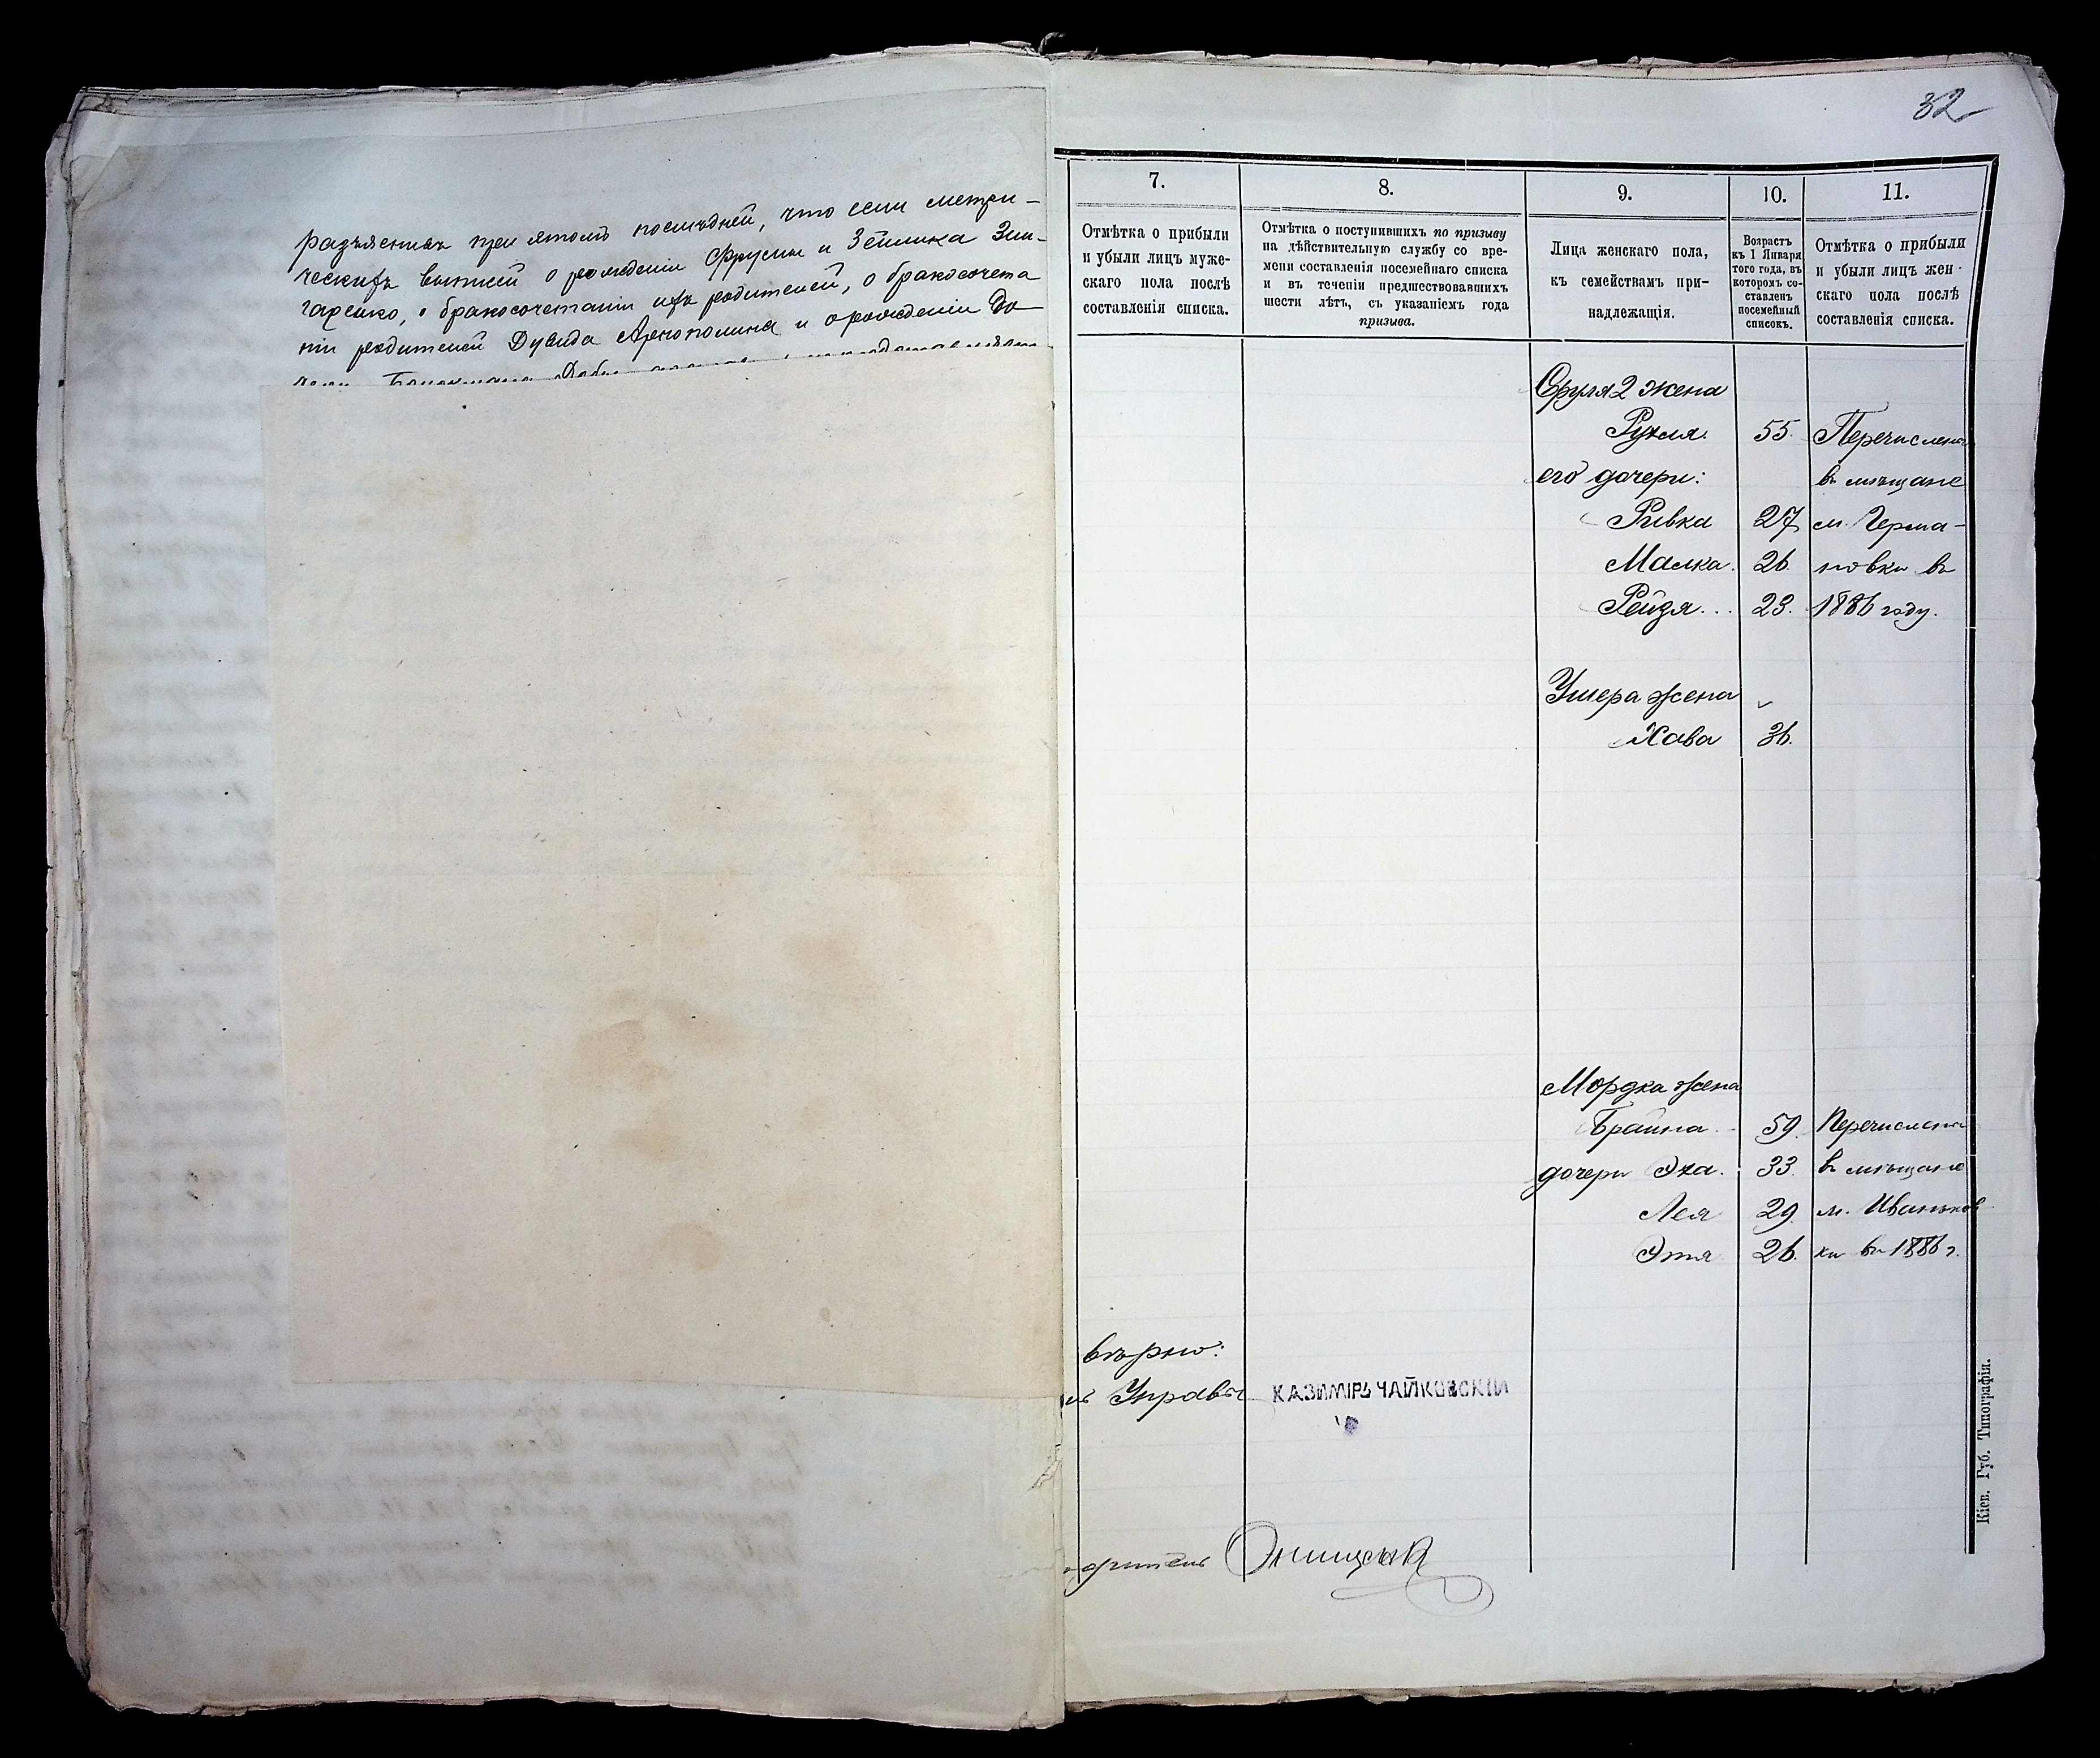 разъясненiя при этомъ послѣдней, что если метри-
ческихъ выписей о рожденiи Фрусины и Зейлика Зин-
о бракосочетанiи ихъ родителей, о бракосочета
нiи родителей Дувида и о рожденiи До
32
7.
8.
9.
10.
11.
Отмѣтка о прибыли
и убыли лицъ муже-
скаго пола послѣ
составленiя списка.
Отмѣтка о поступившихъ по призыву
на дѣйствительную службу со вре-
мени составленiя посемейнаго списка
и въ теченiи предшествовавшихъ
шести лѣтъ, съ указанiемъ года
призыва.
Лица женскаго пола,
къ семействамъ при-
надлежащiя.
Возрастъ
къ 1 Января
того года, въ
которомъ со-
ставленъ
посемейный
списокъ.
Отмѣтка о прибыли
и убыли лицъ жен-
скаго пола послѣ
составленiя списка.
Сруля 2 жена
Рухля. 55. Перечислены
его дочери: въ мѣщане
Ривка 27 м. Герма-
Малка. 26. новки въ
Рейзя... 23. 1886 году.
Ушера жена
Хава 36.
Мордка жена
Брайна 59. Перечислены
дочери Эха. 33. въ мѣщане
Лея 29. м. Иваньков
Этя 26. ки въ 1886 г.
вѣрно:
Управы КАЗИМIРЪ ЧАЙКОВСКIЙ
Кiев. Губ. Типографiя.